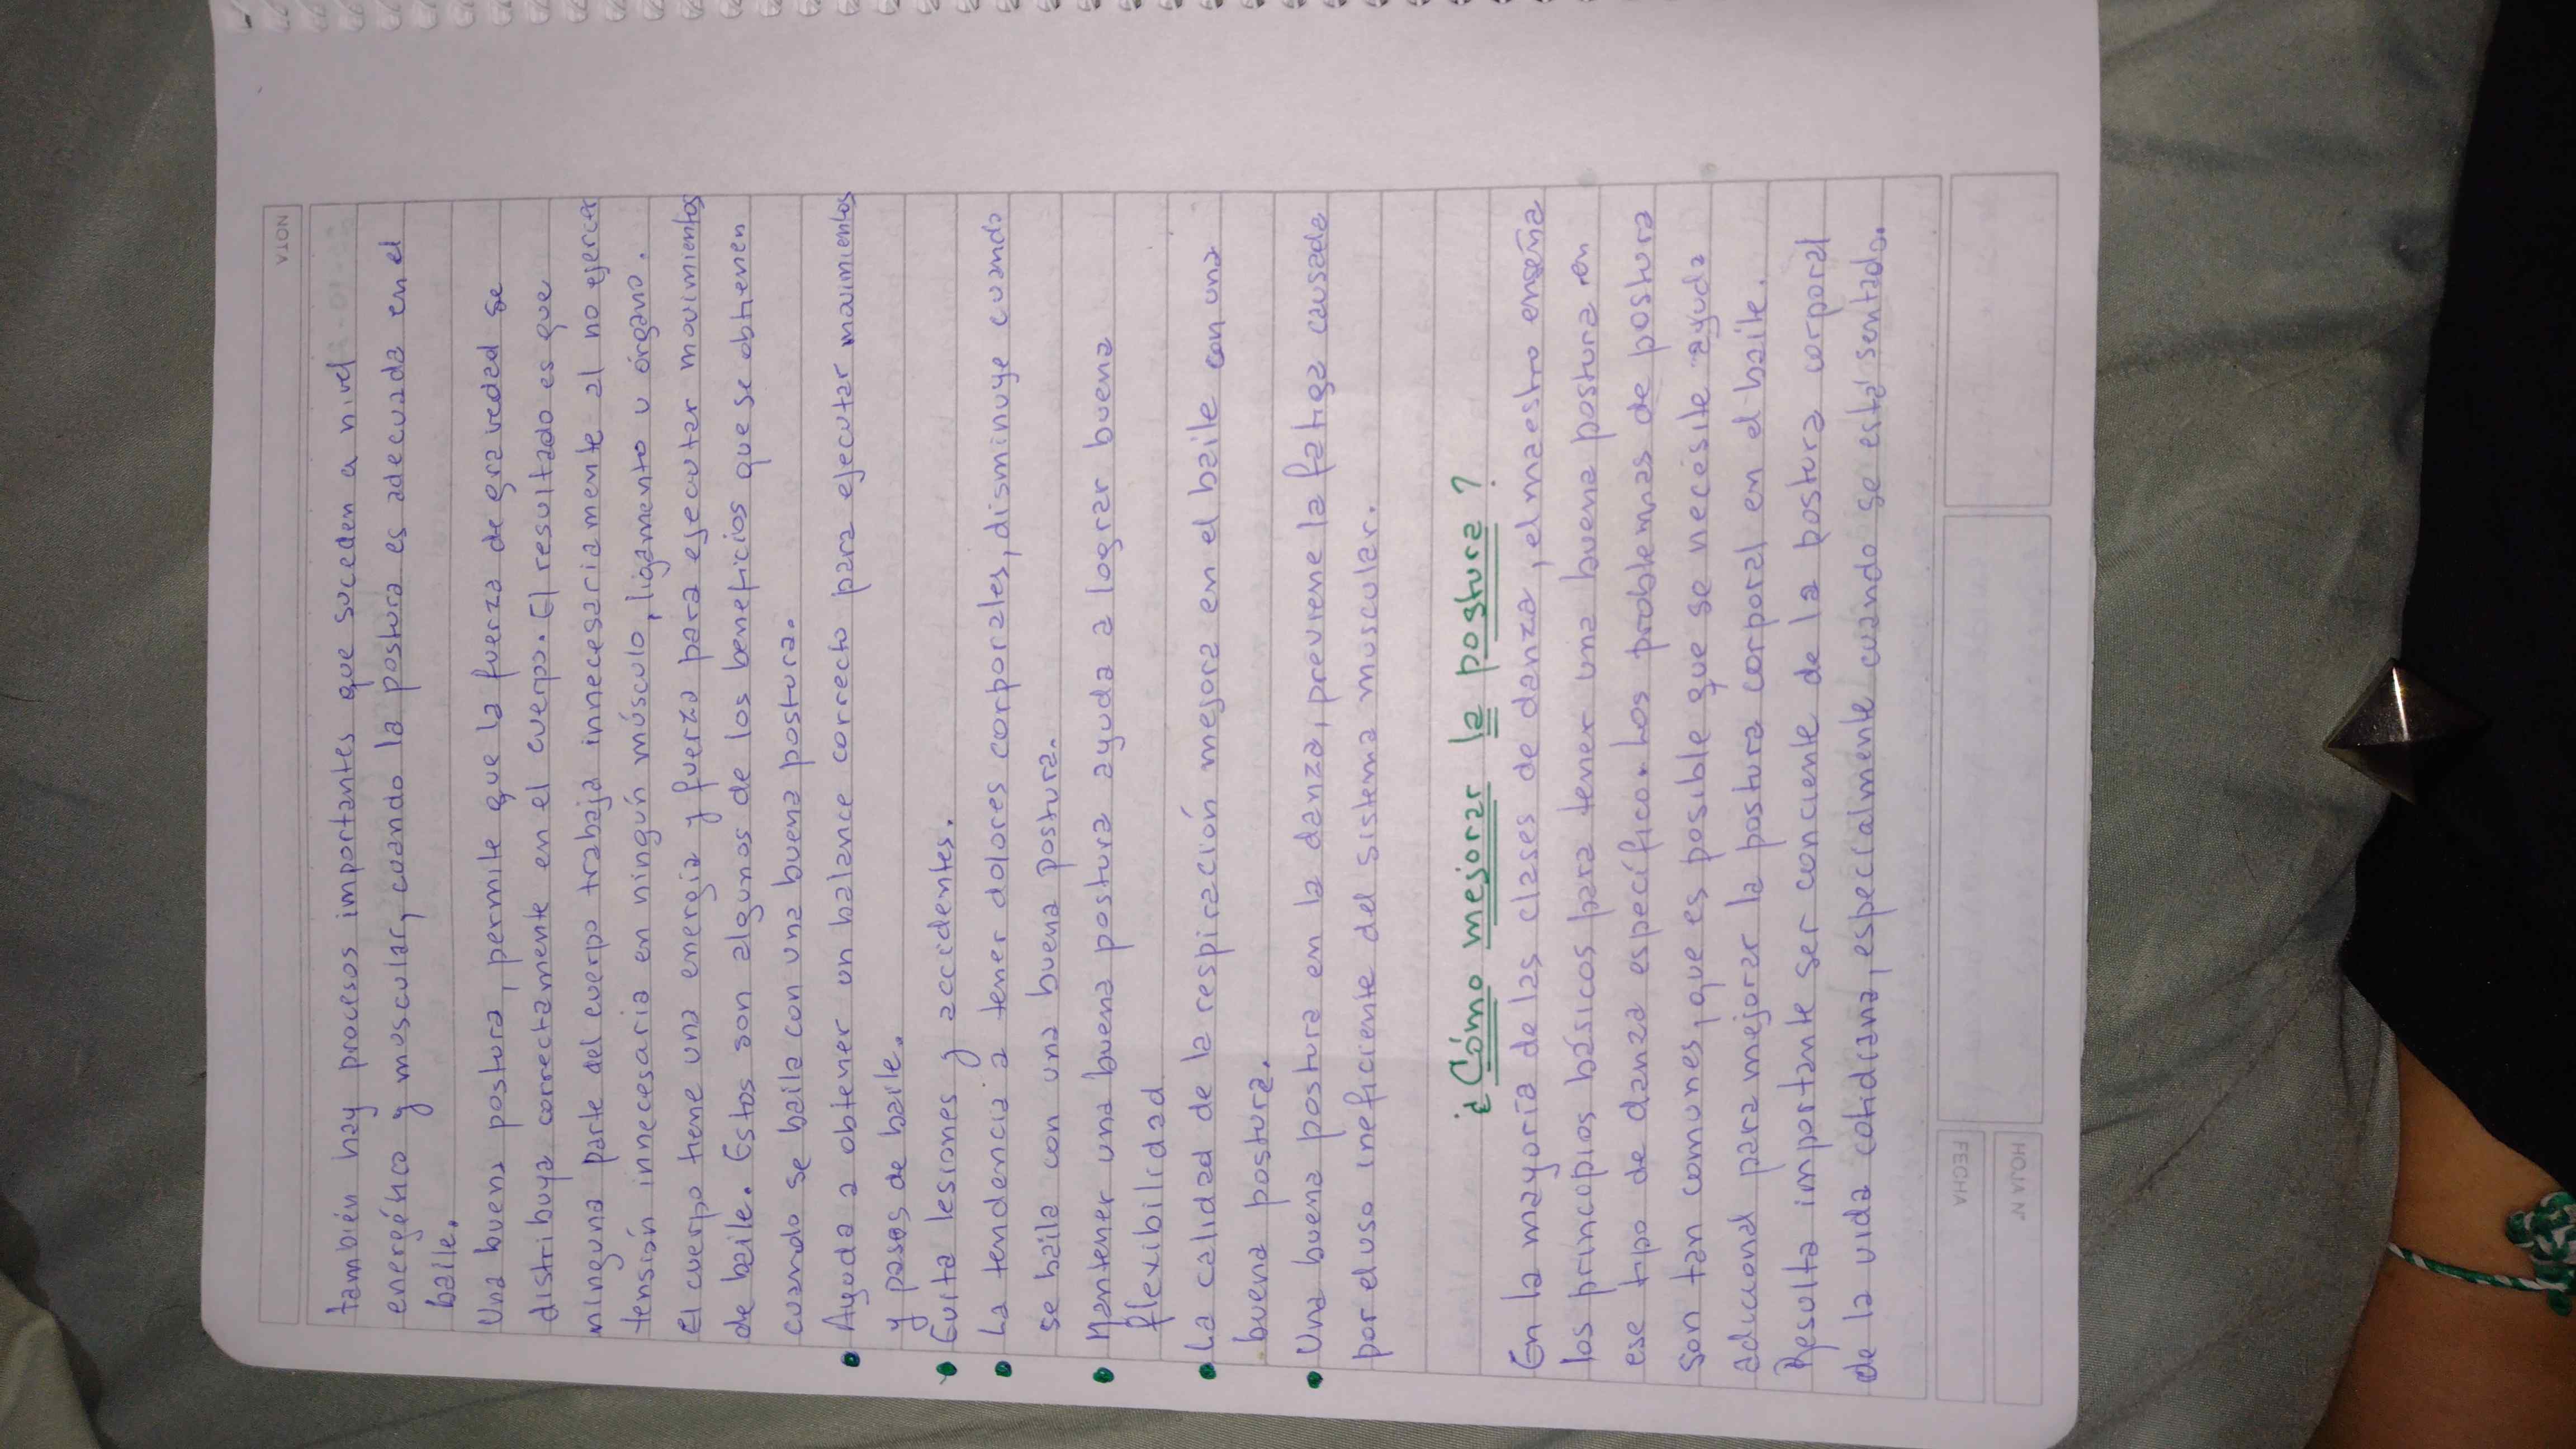 NOTA
también hay procesos importantes que suceden a nivel
energético y muscular, cuando la postura es adecuada en el
baile.
Una buena postura, permite que la fuerza de gravedad se
distribuya correctamente en el cuerpo. El resultado es que
ninguna parte del cuerpo trabaja innecesariamente al no ejercer
tensión innecesaria en ningún músculo, ligamento u órgano.
El cuerpo tiene una energía y fuerza para ejecutar movimientos
de baile. Estos son algunos de los beneficios que se obtienen
cuando se baila con una buena postura.
• Ayuda a obtener un balance correcto para ejecutar movimientos
y pasos de baile.
• Evita lesiones y accidentes.
• La tendencia a tener dolores corporales, disminuye cuando
se baila con una buena postura.
• Mantener una buena postura ayuda a lograr buena
flexibilidad
• La calidad de la respiración mejora en el baile con una
buena postura.
• Una buena postura en la danza, previene la fatiga causada
por el uso ineficiente del sistema muscular.
¿Cómo mejorar la postura?
En la mayoría de las clases de danza, el maestro enseña
los princopios básicos para tener una buena postura en
ese tipo de danza específico. Los problemas de postura
son tan comunes, que es posible que se necesite ayuda
adicional para mejorar la postura corporal en el baile.
Resulta importante ser conciente de la postura corporal
de la vida cotidiana, especialmente cuando se está sentado.
FECHA
HOJA N°